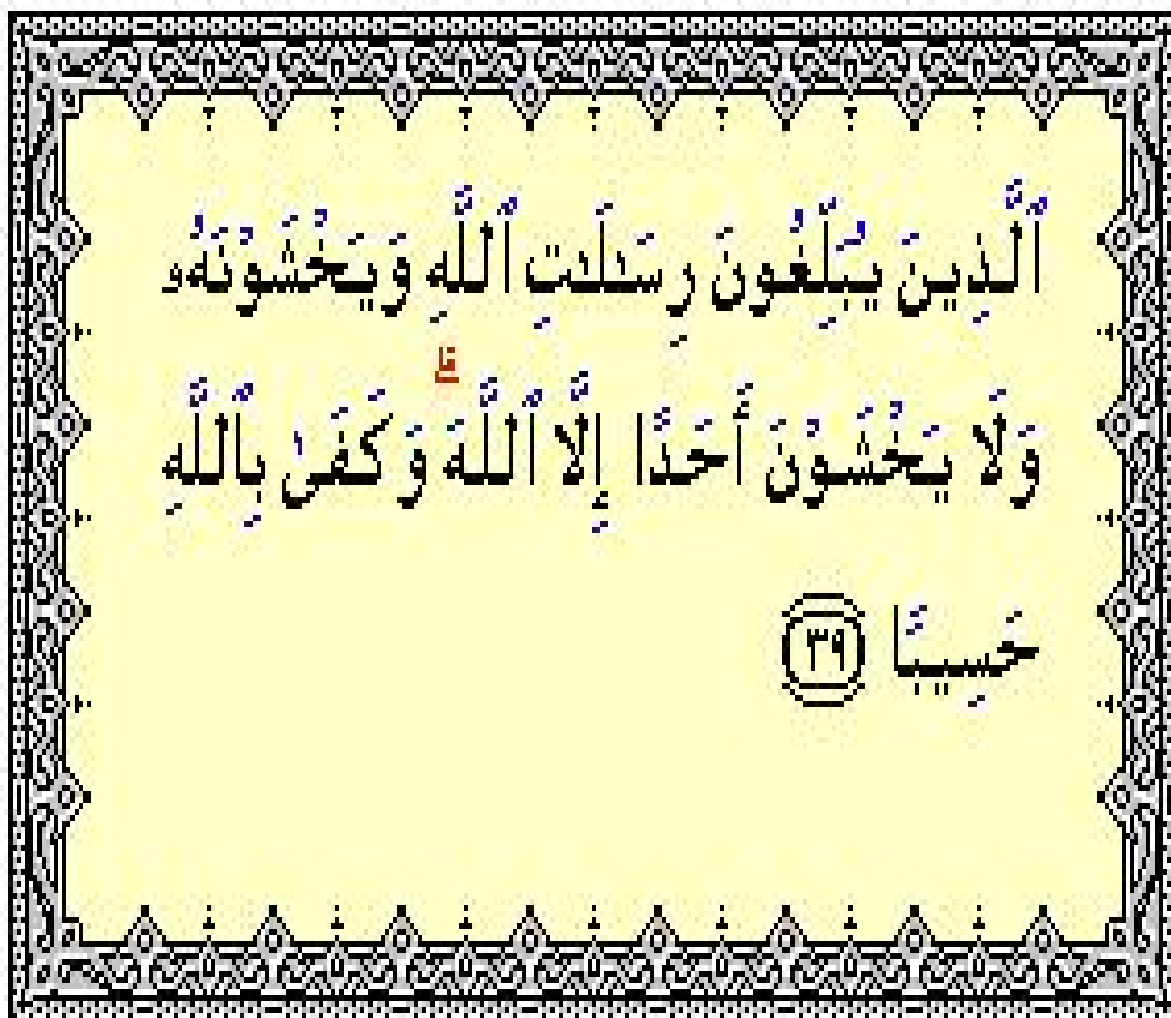 ٱلَّذِينَ يُبَلِّغُونَ رِسَـٰلَـٰتِ ٱللَّهِ وَيَخْشَوْنَهُۥ
وَلَا يَخْشَوْنَ أَحَدًا إِلَّا ٱللَّهَ ۗ وَكَفَىٰ بِٱللَّهِ
حَسِيبًا ٣٩